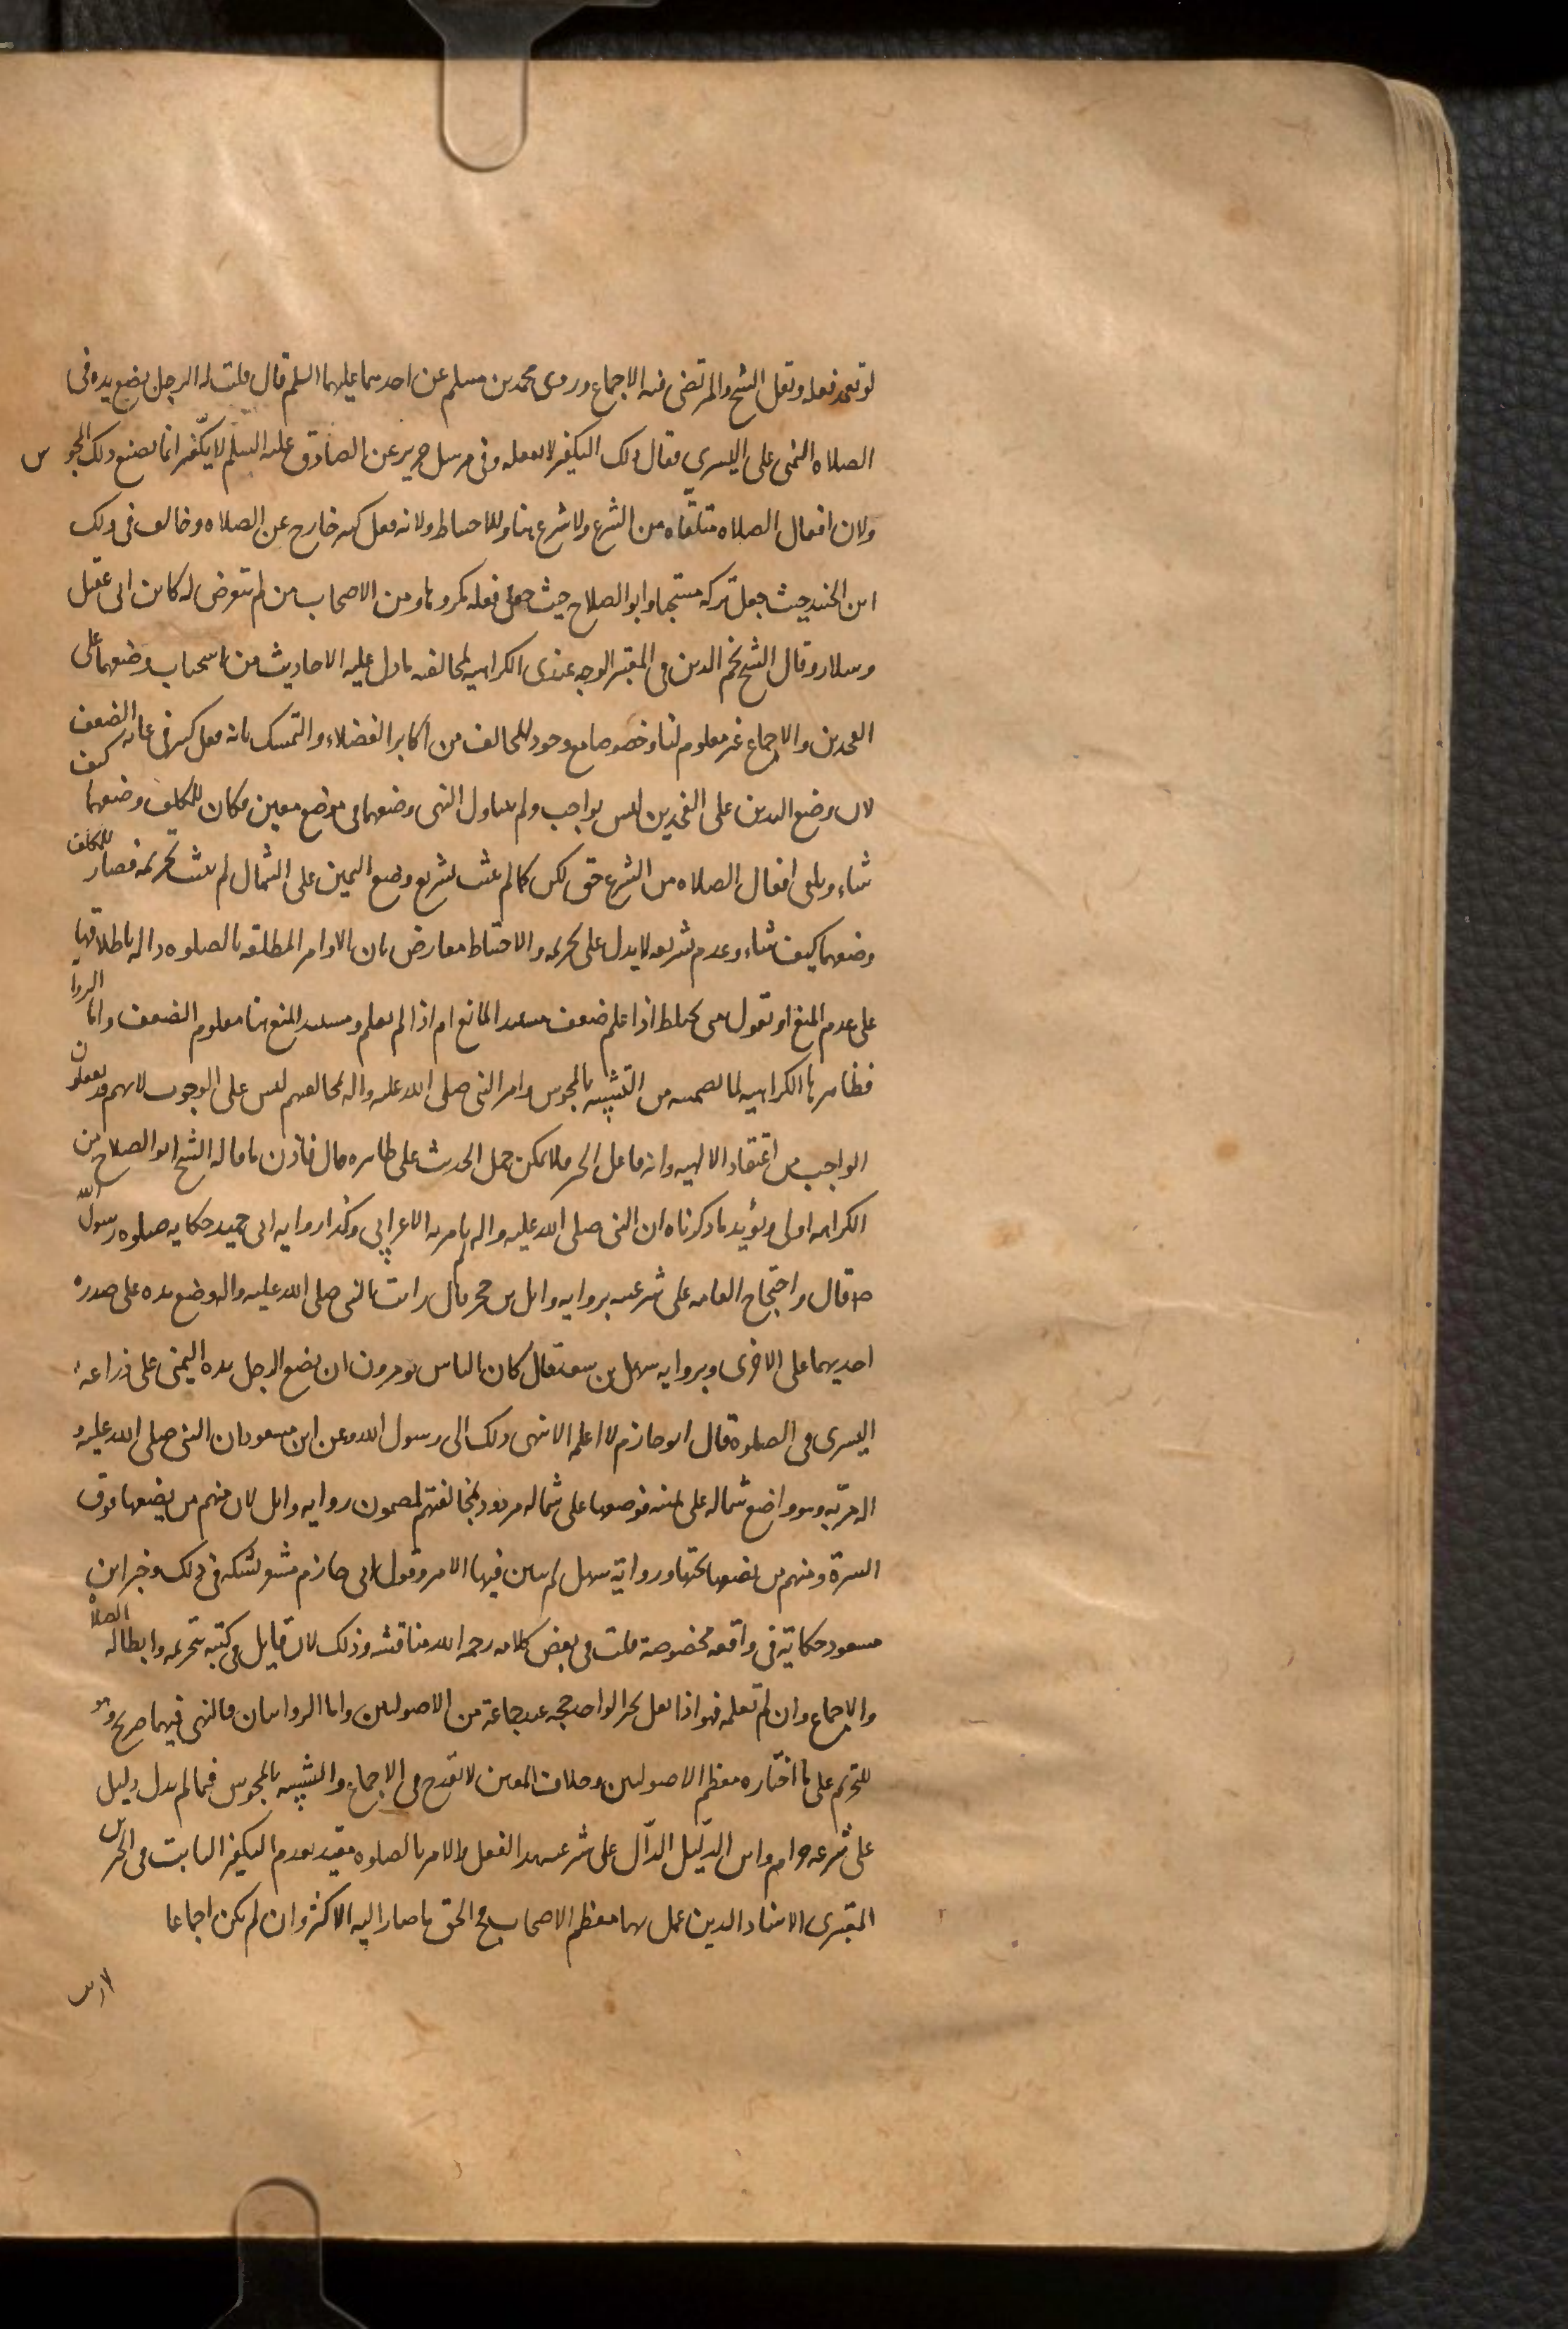 لو تعمد فعله ونقل الشيخ والمرتضى فيه الاجماع وروى محمد بن مسلم عن احدهما عليهما السلم قال قلت له الرجل يضع يده فى
الصلاه اليمنى على اليسرى فقال ذلك التكفير لا تفعله وفى مرسل حريز عن الصادق عليه السلم لا يكفر انما يصنع ذلك المجوس
ولان افعال الصلاه متلقاه من الشرع ولا شرع هنا وللاحتياط ولانه فعل كثير خارج عن الصلاه وخالف فى ذلك
ابن الجنيد حيث جعل تركه مستحبا وابو الصلاح حيث جعل فعله مكروها ومن الاصحاب من لم يتعرض له كابن ابى عقيل
وسلار وقال الشيخ نجم الدين فى المعتبر الوجه عندى الكراهيه لمخالفته ما دل عليه الاحاديث من استحباب وضعهما على
الفخذين والاجماع غير معلوم لنا وخصوصا مع وجود المخالف من اكابر الفضلاء والتمسك بانه فعل كثير فى غايه الضعف
لان وضع اليدين على الفخذين ليس بواجب ولم يتناول النهى وضعهما فى موضع معين فكان للمكلف وضعهما كيف
شاء وتلقى افعال الصلاه من الشرع حق لكن كما لم يثبت تشريع وضع اليمين على الشمال لم يثبت تحريمه فصار للمكلف
وضعهما كيف شاء وعدم تشريعه لا يدل على تحريمه والاحتياط معارض بان الاوامر المطلقه بالصلوه داله باطلاقها
على عدم المنع او نقول متى يحتاط اذا علم ضعف مستند المانع ام اذا لم يعلم ومستند المنع هنا معلوم الضعف واما الروا
فظاهرها الكراهيه لما تضمنه من التشبيه بالمجوس وامر النبى صلى الله عليه واله بمخالفتهم ليس على الوجوب لانهم قد يفعلون
الواجب من اعتقاد الالهيه وانه فاعل الخير فلا يمكن حمل الحديث على ظاهره قال فاذن ما قاله الشيخ ابو الصلاح من
الكراهه اولى ويؤيد ما ذكرناه ان النبى صلى الله عليه واله لم يامر به الاعرابى وكذا روايه ابى حميد حكايه صلوه رسول الله
ص قال واحتجاج العامه على شرعيته بروايه وايل بن حجر قال رايت النبى صلى الله عليه واله وضع يده على صدره
احديهما على الاخرى وبروايه سهل بن سعد قال كان الناس يومرون ان يضع الرجل يده اليمنى على ذراعه
اليسرى فى الصلوة قال ابو حازم لا اعلم الا ينهى ذلك الى رسول الله وعن ابن مسعود ان النبى صلى الله عليه و
اله مر به وهو واضع شماله على يمينه فوضعها على شماله مردود لمخالفتهم لمضمون روايه وايل لان منهم من يضعها فوق
السرة ومنهم من يضعها تحتها ورواية سهل لم يبين فيها الامر وقول ابى حازم مشعر بشكه فى ذلك وخبر ابن
مسعود حكاية فى واقعه مخصوصة قلت فى بعض كلامه رحمه الله مناقشه وذلك لانه قايل فى كتبه بتحريمه وابطاله الصلاه
والاجماع وان لم نعلمه فهو اذا نقل بخبر الواحد حجه عند جماعة من الاصوليين واما الروايتان فالنهى فيهما صريح وهو
للتحريم على ما اختاره معظم الاصوليين وخلاف المعين لا يقدح فى الاجماع والتشبيه بالمجوس فيما لم يدل دليل
على شرعه حرام واين الدليل الدال على شرعيه هذا الفعل والامر بالصلوه مقيد بعدم التكفير الثابت فى الخبرين
المعتبرى الاسناد الذين عمل بهما معظم الاصحاب فح الحق ما صار اليه الاكثر وان لم يكن اجماعا